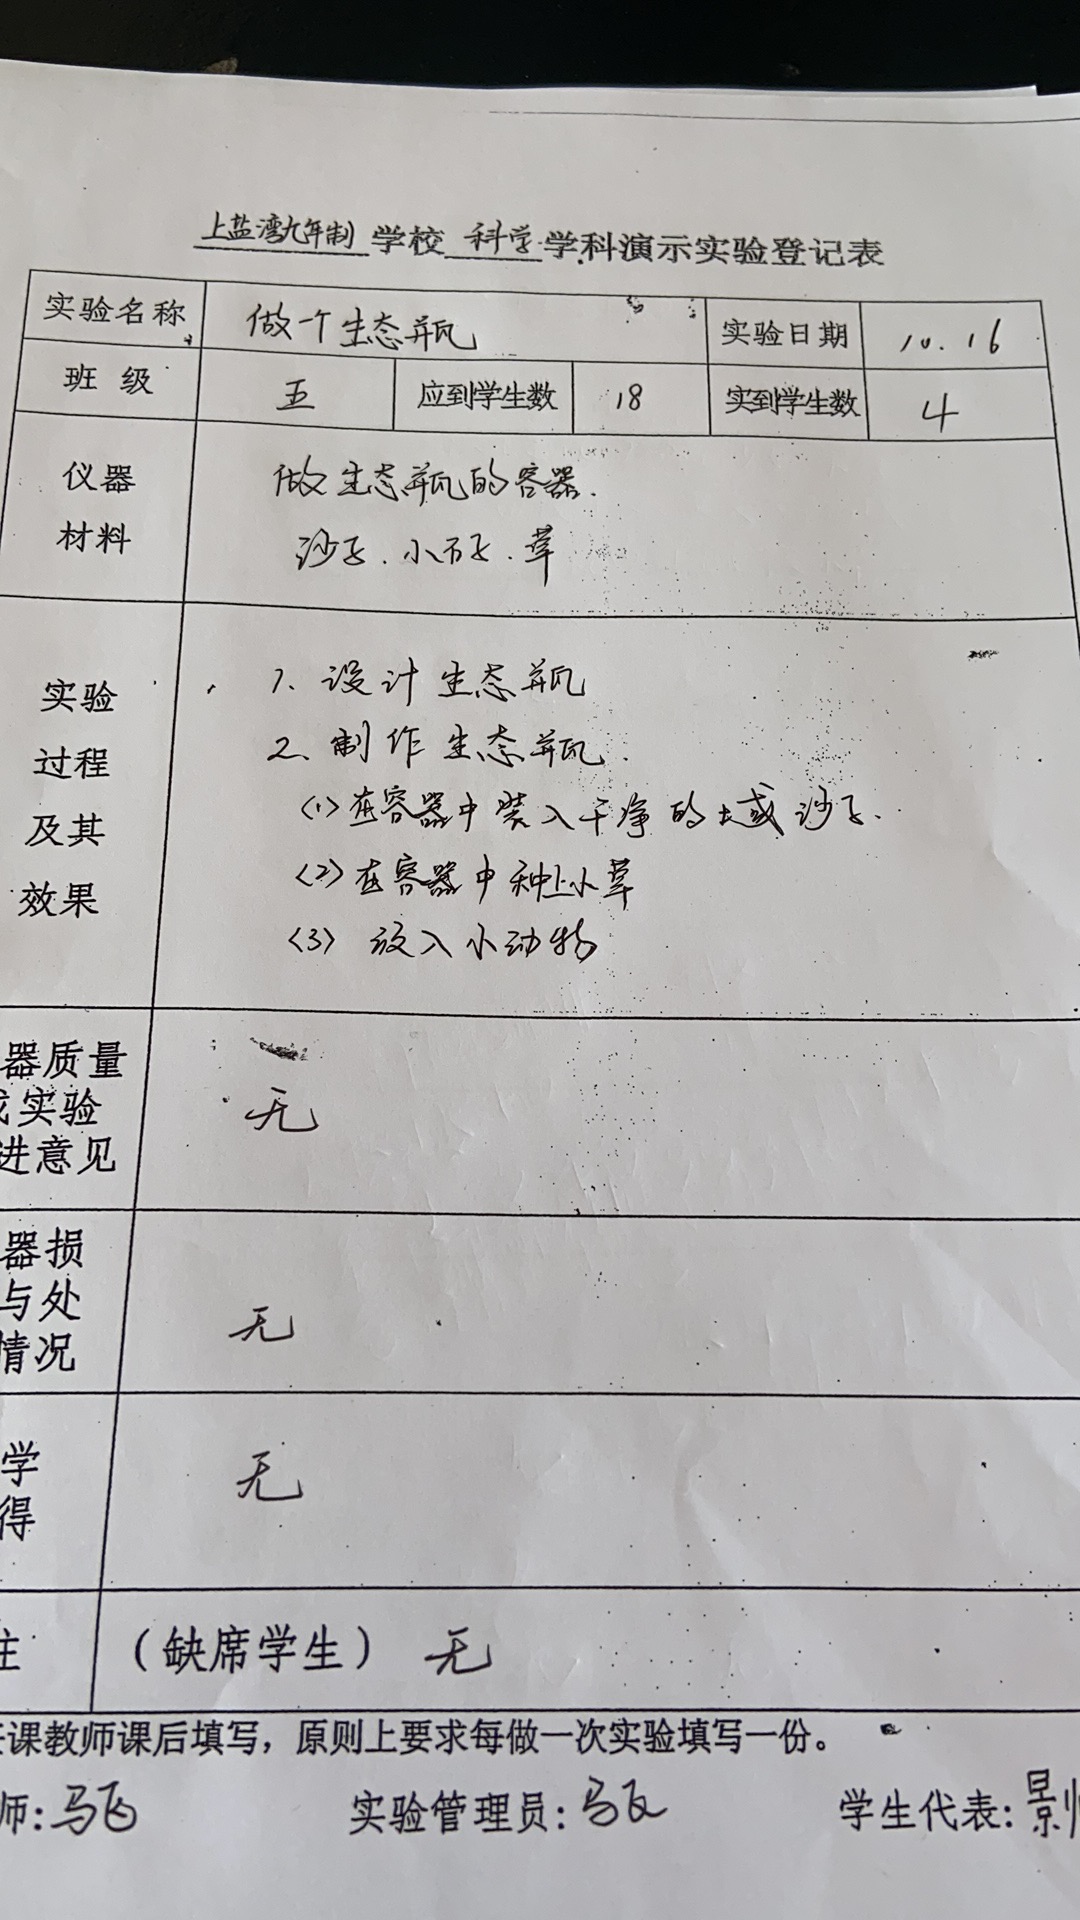 上盐湾九年制学校科学学科演示实验登记表
实验名称 做一个生态瓶 实验日期 10.16
班级 五 应到学生数 18 实到学生数 4
仪器 做生态瓶的容器.
材料 沙子.小石子.草
实验 1、设计生态瓶
过程 2、制作生态瓶.
及其 (1)在容器中装入干净的土或沙子.
效果 (2)在容器中种上小草
(3) 放入小动物
器质量
实验 无
进意见
器损
与处 无
情况
学 无
得
(缺席学生) 无
课教师课后填写，原则上要求每做一次实验填写一份。
师:马飞 实验管理员:马飞 学生代表:景